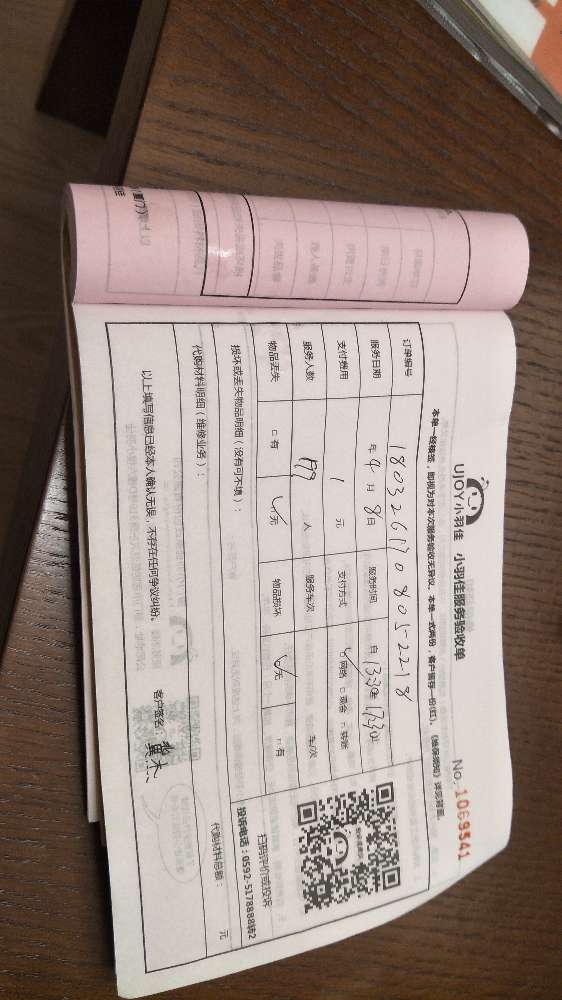 UJOY小羽佳 小羽佳服务验收单
No. 1069541
本单一经接签，即视为对本次服务验收无异议。本单一式两份，客户留存一份(红)。《维保须知》详见背面。
订单编号 180326170805-2218
服务日期 年 4 月 8 日 服务时间 自 13:30至17:30止
支付费用 1 元 支付方式 网络 现金 转账
服务人数 人 服务车次 车/次
物品丢失 有 无 物品损坏 无 有
损坏或丢失物品明细（没有可不填）：
扫码评价或投诉
投诉电话：0592-5178888转2
代购材料明细（维修业务）：
代购材料总额： 元
以上填写信息已经本人确认无误，不存在任何争议纠纷。
客户签名：